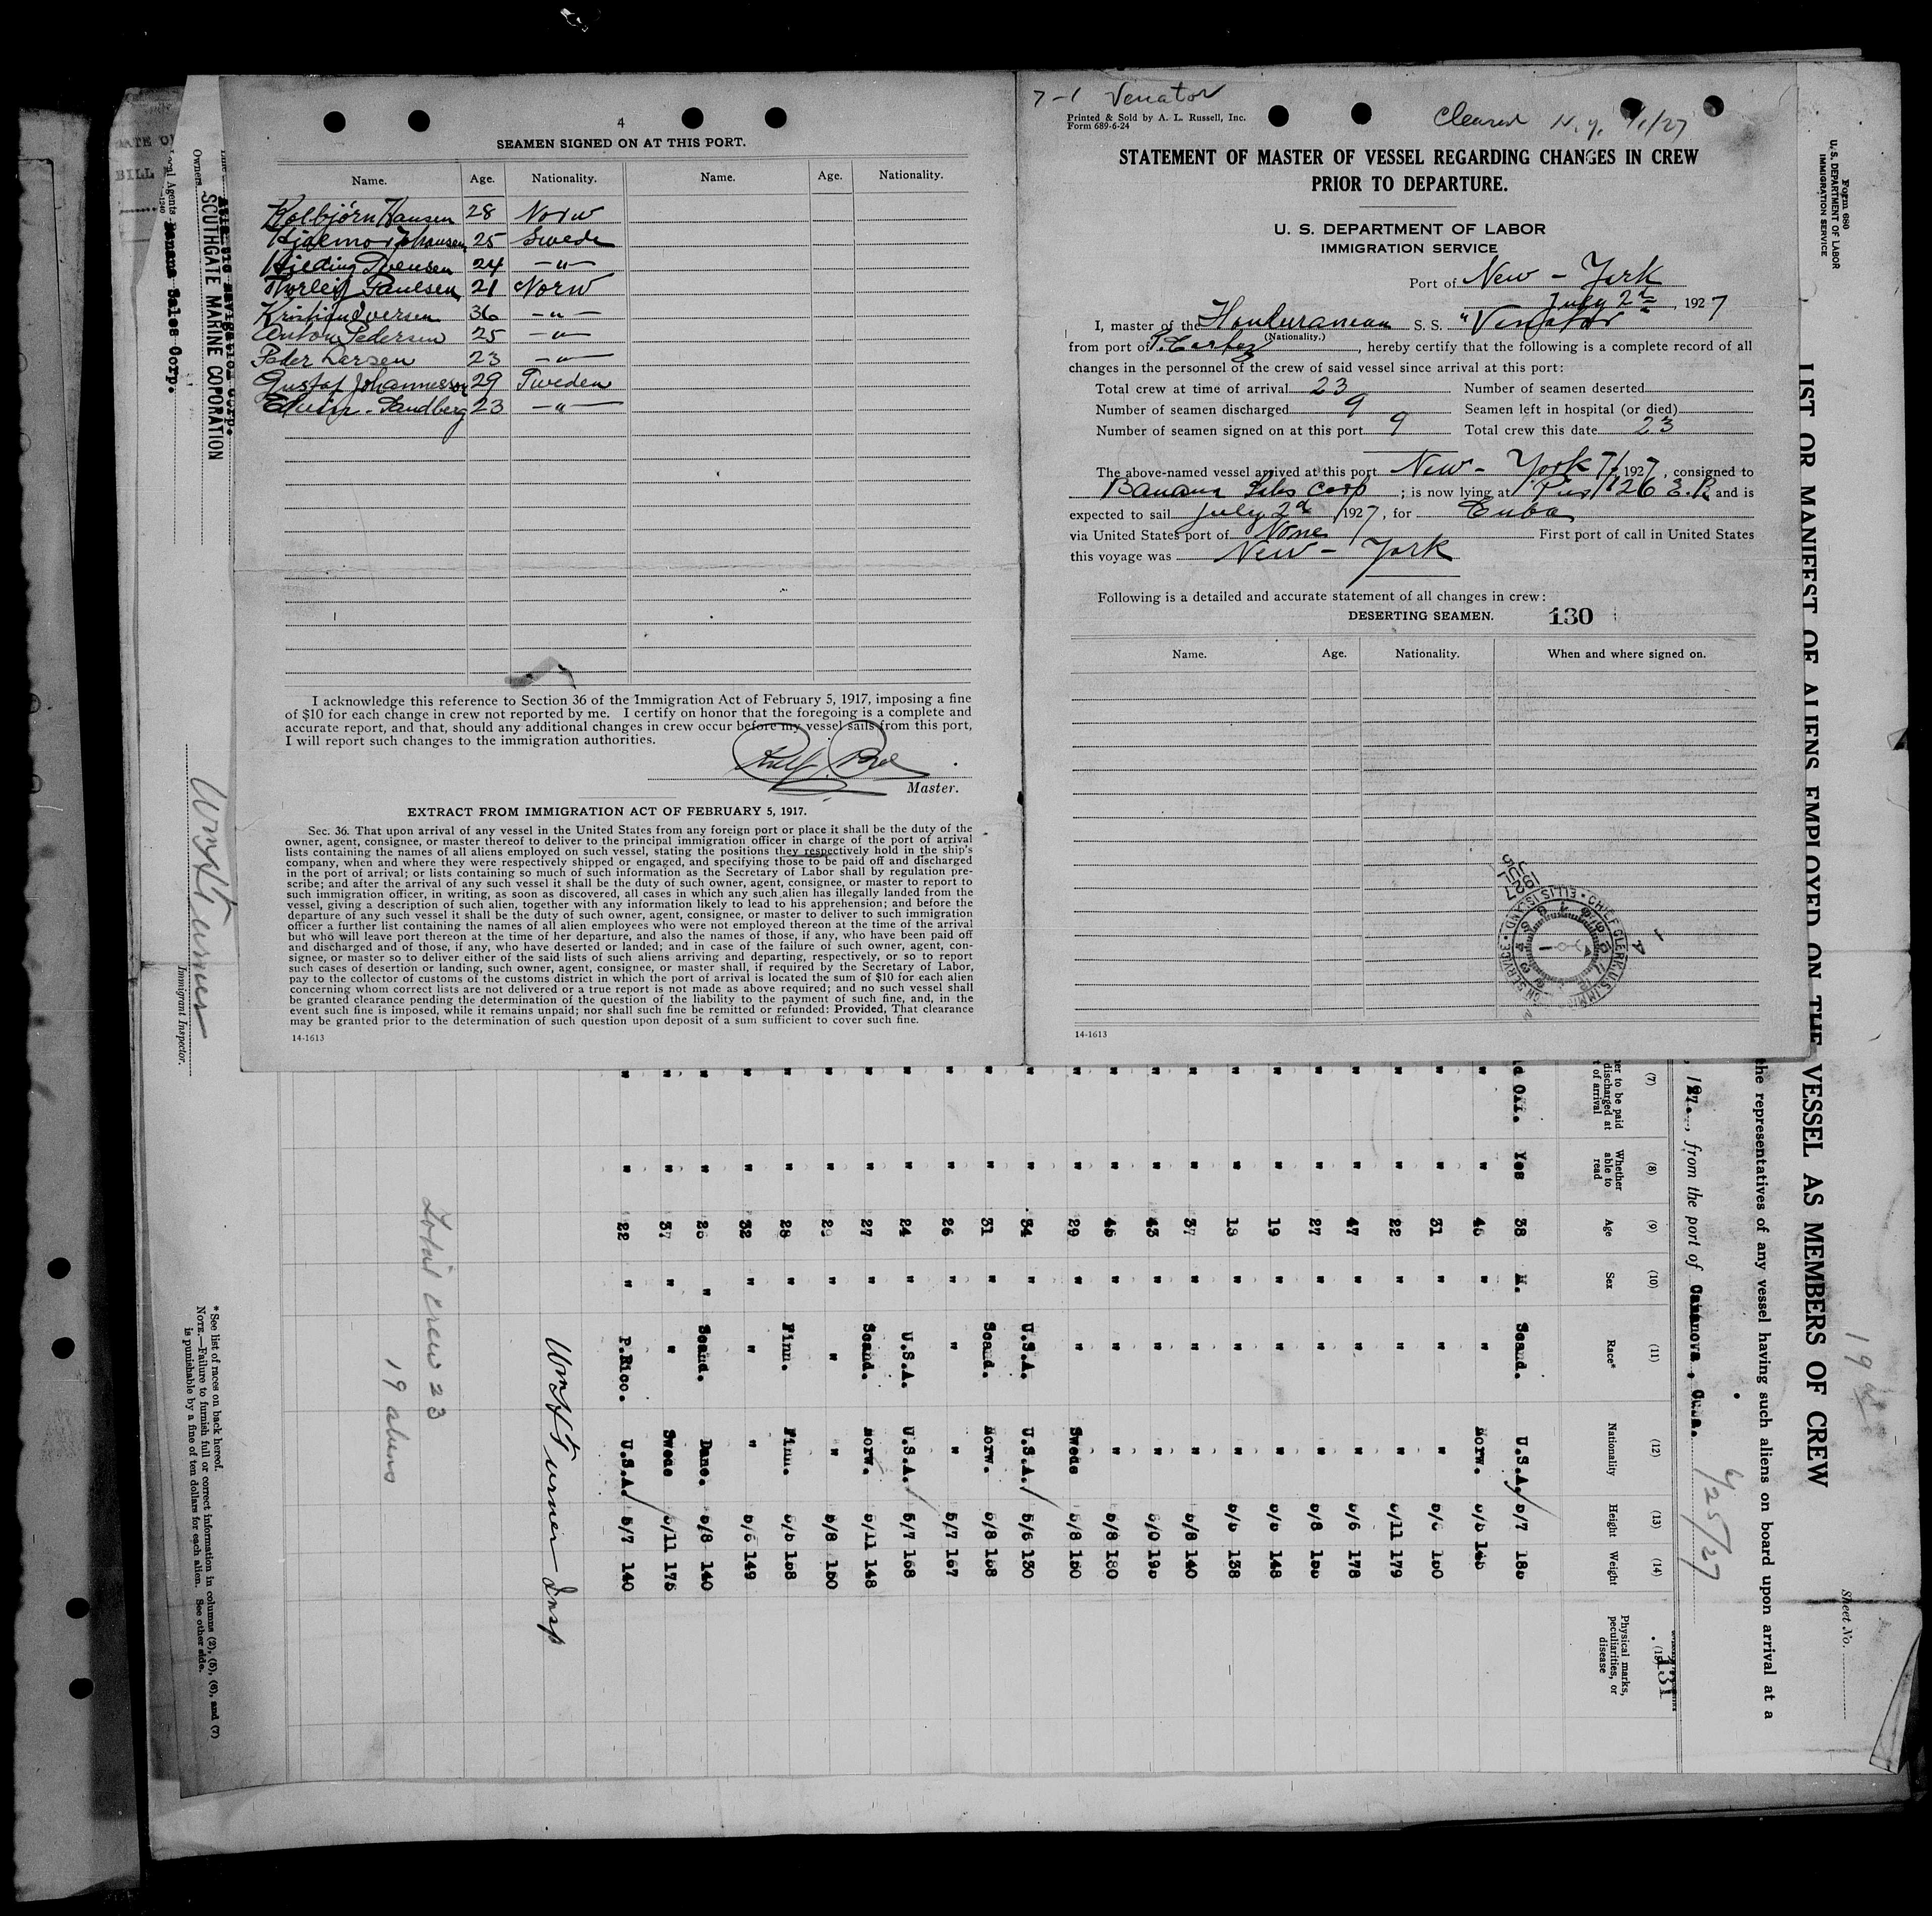 4
SEAMEN SIGNED ON AT THIS PORT.
Name. Age. Nationality. Name. Age. Nationality.
Kolbjørn Hansen 28 Norw
Hjalmar Johansen 25 Swede
Hilding Svensen 24 –"–
Thorleif Paulsen 21 Norw
Kristian Iversen 36 –"–
Anton Pedersen 25 –"–
Peder Larsen 23 –"–
Gustaf Johannesson 29 Sweden
Edwin Sandberg 23 –"–
I acknowledge this reference to Section 36 of the Immigration Act of February 5, 1917, imposing a fine
of $10 for each change in crew not reported by me. I certify on honor that the foregoing is a complete and
accurate report, and that, should any additional changes in crew occur before my vessel sails from this port,
I will report such changes to the immigration authorities.
Master.
EXTRACT FROM IMMIGRATION ACT OF FEBRUARY 5, 1917.
Sec. 36. That upon arrival of any vessel in the United States from any foreign port or place it shall be the duty of the
owner, agent, consignee, or master thereof to deliver to the principal immigration officer in charge of the port of arrival
lists containing the names of all aliens employed on such vessel, stating the positions they respatively hold in the ship's
company, when and where they were respectively shipped or engaged, and specifying those to be paid off and discharged
in the port of arrival; or lists containing so much of such information as the Secretary of Labor shall by regulation pre-
scribe; and after the arrival of any such vessel it shall be the duty of such owner, agent, consignee, or master to report to
such immigration officer, in writing, as soon as discovered, all cases in which any such alien has illegally landed from the
vessel, giving a description of such alien, together with any information likely to lead to his apprehension; and before the
departure of any such vessel it shall be the duty of such owner, agent, consignee, or master to deliver to such immigration
officer a further list containing the names of all alien employees who were not employed thereon at the time of the arrival
but who will leave port thereon at the time of her departure, and also the names of those, if any, who have been paid off
and discharged and of those, if any, who have deserted or landed; and in case of the failure of such owner, agent, con-
signee, or master so to deliver either of the said lists of such aliens arriving and departing, respectively, or so to report
such cases of desertion or landing, such owner, agent, consignee, or master shall, if required by the Secretary of Labor,
pay to the collector of customs of the customs district in which the port of arrival is located the sum of $10 for each alien
concerning whom correct lists are not delivered or a true report is not made as above required; and no such vessel shall
be granted clearance pending the determination of the question of the liability to the payment of such fine, and, in the
event such fine is imposed, while it remains unpaid; nor shall such fine be remitted or refunded: Provided, That clearance
may be granted prior to the determination of such question upon deposit of a sum sufficient to cover such fine.
14-1613
7-1 Venator
Printed & Sold by A. L. Russell, Inc.
Form 689-6-24
Cleared N.Y. 7/1/27
STATEMENT OF MASTER OF VESSEL REGARDING CHANGES IN CREW
PRIOR TO DEPARTURE.
U. S. DEPARTMENT OF LABOR
IMMIGRATION SERVICE
Port of New - York
July 2d, 1927
I, master of the Honduranean S. S. "Venator
(Nationality.)
from port of P. Cortez, hereby certify that the following is a complete record of all
changes in the personnel of the crew of said vessel since arrival at this port:
Total crew at time of arrival 23 Number of seamen deserted
Number of seamen discharged 9 Seamen left in hospital (or died)
Number of seamen signed on at this port 9 Total crew this date 23
The above-named vessel arrived at this port New - York 7/1 1927, consigned to
Banana Sales Corp; is now lying at Pier 126 E.R. and is
expected to sail July 2d 1927, for Cuba
via United States port of None First port of call in United States
this voyage was New - York
Following is a detailed and accurate statement of all changes in crew:
DESERTING SEAMEN. 130
Name. Age. Nationality. When and where signed on.
14-1613
Form 680
U. S. DEPARTMENT OF LABOR
IMMIGRATION SERVICE
Sheet No.
LIST OR MANIFEST OF ALIENS EMPLOYED ON THE VESSEL AS MEMBERS OF CREW
the representatives of any vessel having such aliens on board upon arrival at a
, from the port of Cuba. 6/25/27
131
(7) (8) (9) (10) (11) (12) (13) (14) (15)
Whether able to read Age Sex Race* Nationality Height Weight Physical marks, peculiarities, or disease
Yes 38 M. Scand. U.S.A. 5/7
" " " Norw.
" 31 " " "
" 22 " " " 179
" 47 " " " 5/6 178
" 27 " " " 5/8
" 19 " " " 148
" 19 " " " 138
" 37 " " " 5/8 140
" 43 " " " 6/0
" " " " 5/8 180
" 29 " " Swede 5/8
" 34 " U.S.A. U.S.A. 5/6 130
" 31 " Scand. Norw. 5/8
" 26 " " " 5/7 167
" 24 " U.S.A. U.S.A. 5/7 168
" 27 " Scand. Norw. 5/11 148
" " " " 5/8
" 28 " Finn. Finn.
" 32 " " " 149
" " Scand. Dane. 5/8 140
" 37 " " Swede 5/11 175
" 22 " P.Rico. U.S.A. 5/7 140
Wm H Turner Insp
Total crew 23
19 aliens
* See list of races on back hereof.
NOTE.—Failure to furnish full or correct information in columns (2), (5), (6), and (7)
is punishable by a fine of ten dollars for each alien. See other side.
Owners
SOUTHGATE MARINE COPORATION
Local Agents Banana Sales Corp.
Wm H Turner
Immigrant Inspector.